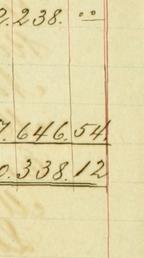 2.238. ..
7.646.54
0.338.12